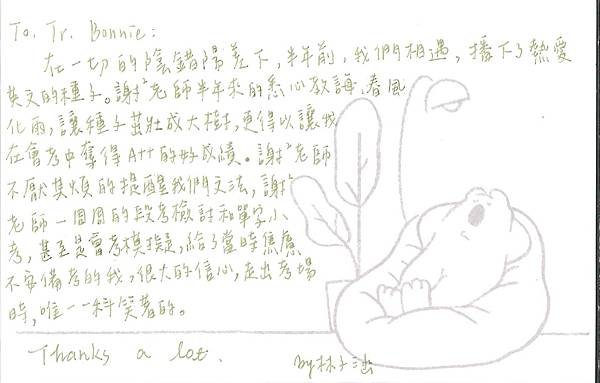 To. Tr. Bonnie:
在一切的陰錯陽差下,半年前,我們相遇,播下了熱愛
英文的種子。謝謝老師半年來的悉心教誨,春風
化雨,讓種子茁壯成大樹,更得以讓我
在會考中奪得A++的好成績。謝謝老師
不厭其煩的提醒我們文法,謝謝
老師一周周的段考檢討和單字小
考,甚至是會考模擬,給了當時焦慮
不安備考的我,很大的信心,走出考場
時,唯一一科笑著的。
Thanks a lot.
by 林子